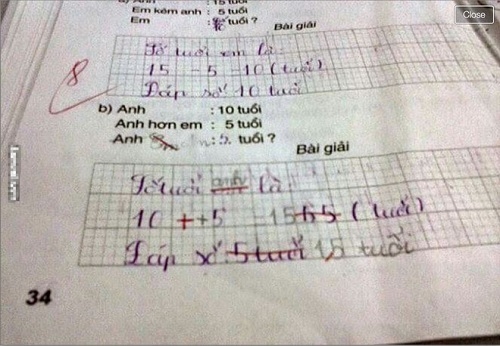 Close
a) Anh : 15 tuổi
Em kém anh : 5 tuổi
Em : tuổi ?
Bài giải
Số tuổi em là:
15 - 5 = 10 (tuổi)
Đáp số 10 tuổi
8
b) Anh : 10 tuổi
Anh hơn em : 5 tuổi
Anh : tuổi ?
Bài giải
Số tuổi anh là:
10 + +5 15 (tuổi)
Đáp số 5 tuổi 15 tuổi
34